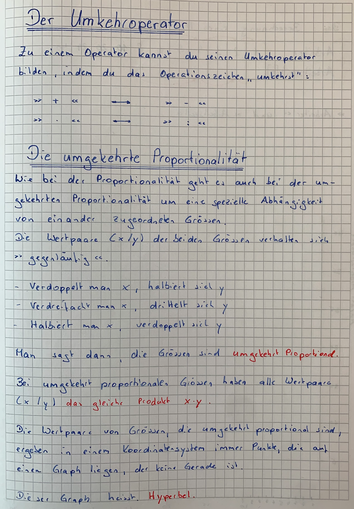 Der Umkehroperator
Zu einem Operator kannst du seinen Umkehroperator
bilden, indem du das Operationszeichen „umkehrst":
» + « → » - «
» · « → » : «
Die umgekehrte Proportionalität
Wie bei der Proportionalität geht es auch bei der um-
gekehrten Proportionalität um eine spezielle Abhängigkeit
von einander zugeordneten Grössen.
Die Wertpaare (x/y) der beiden Grössen verhalten sich
» gegenläufig «.
- Verdoppelt man x, halbiert sich y
- Verdreifacht man x, drittelt sich y
- Halbiert man x, verdoppelt sich y
Man sagt dann, die Grössen sind umgekehrt Proportional.
Bei umgekehrt proportionalen Grössen haben alle Wertpaare
(x/y) das gleiche Produkt x·y.
Die Wertpaare von Grössen, die umgekehrt proportional sind,
ergeben in einem Koordinatesystem immer Punkte, die auf
einem Graph liegen, der keine Gerade ist.
Dieser Graph heisst Hyperbel.